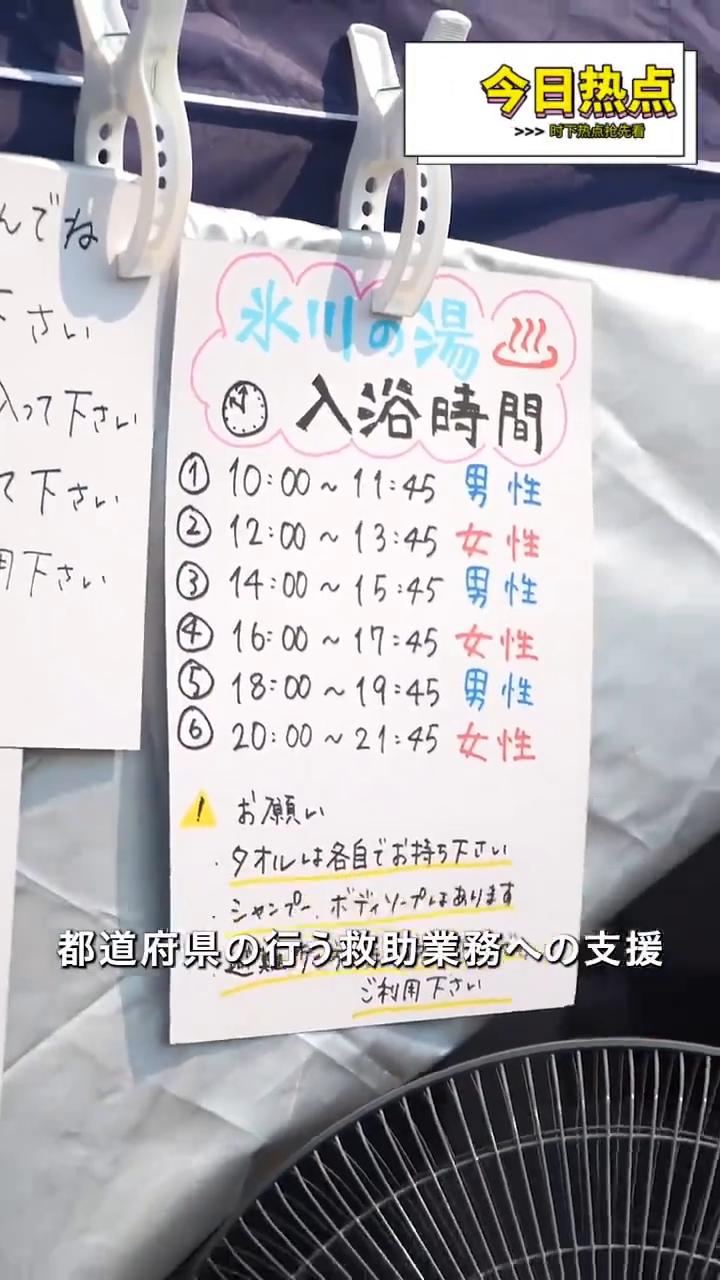 今日热点
>>> 时下热点抢先看
んでね
下さい
入って下さい
て下さい
用下さい
氷川の湯
入浴時間
① 10:00 ~ 11:45 男性
② 12:00 ~ 13:45 女性
③ 14:00 ~ 15:45 男性
④ 16:00 ~ 17:45 女性
⑤ 18:00 ~ 19:45 男性
⑥ 20:00 ~ 21:45 女性
お願い
・タオルは各自でお持ち下さい
・シャンプー、ボディソープはあります
都道府県の行う救助業務への支援
ご利用下さい